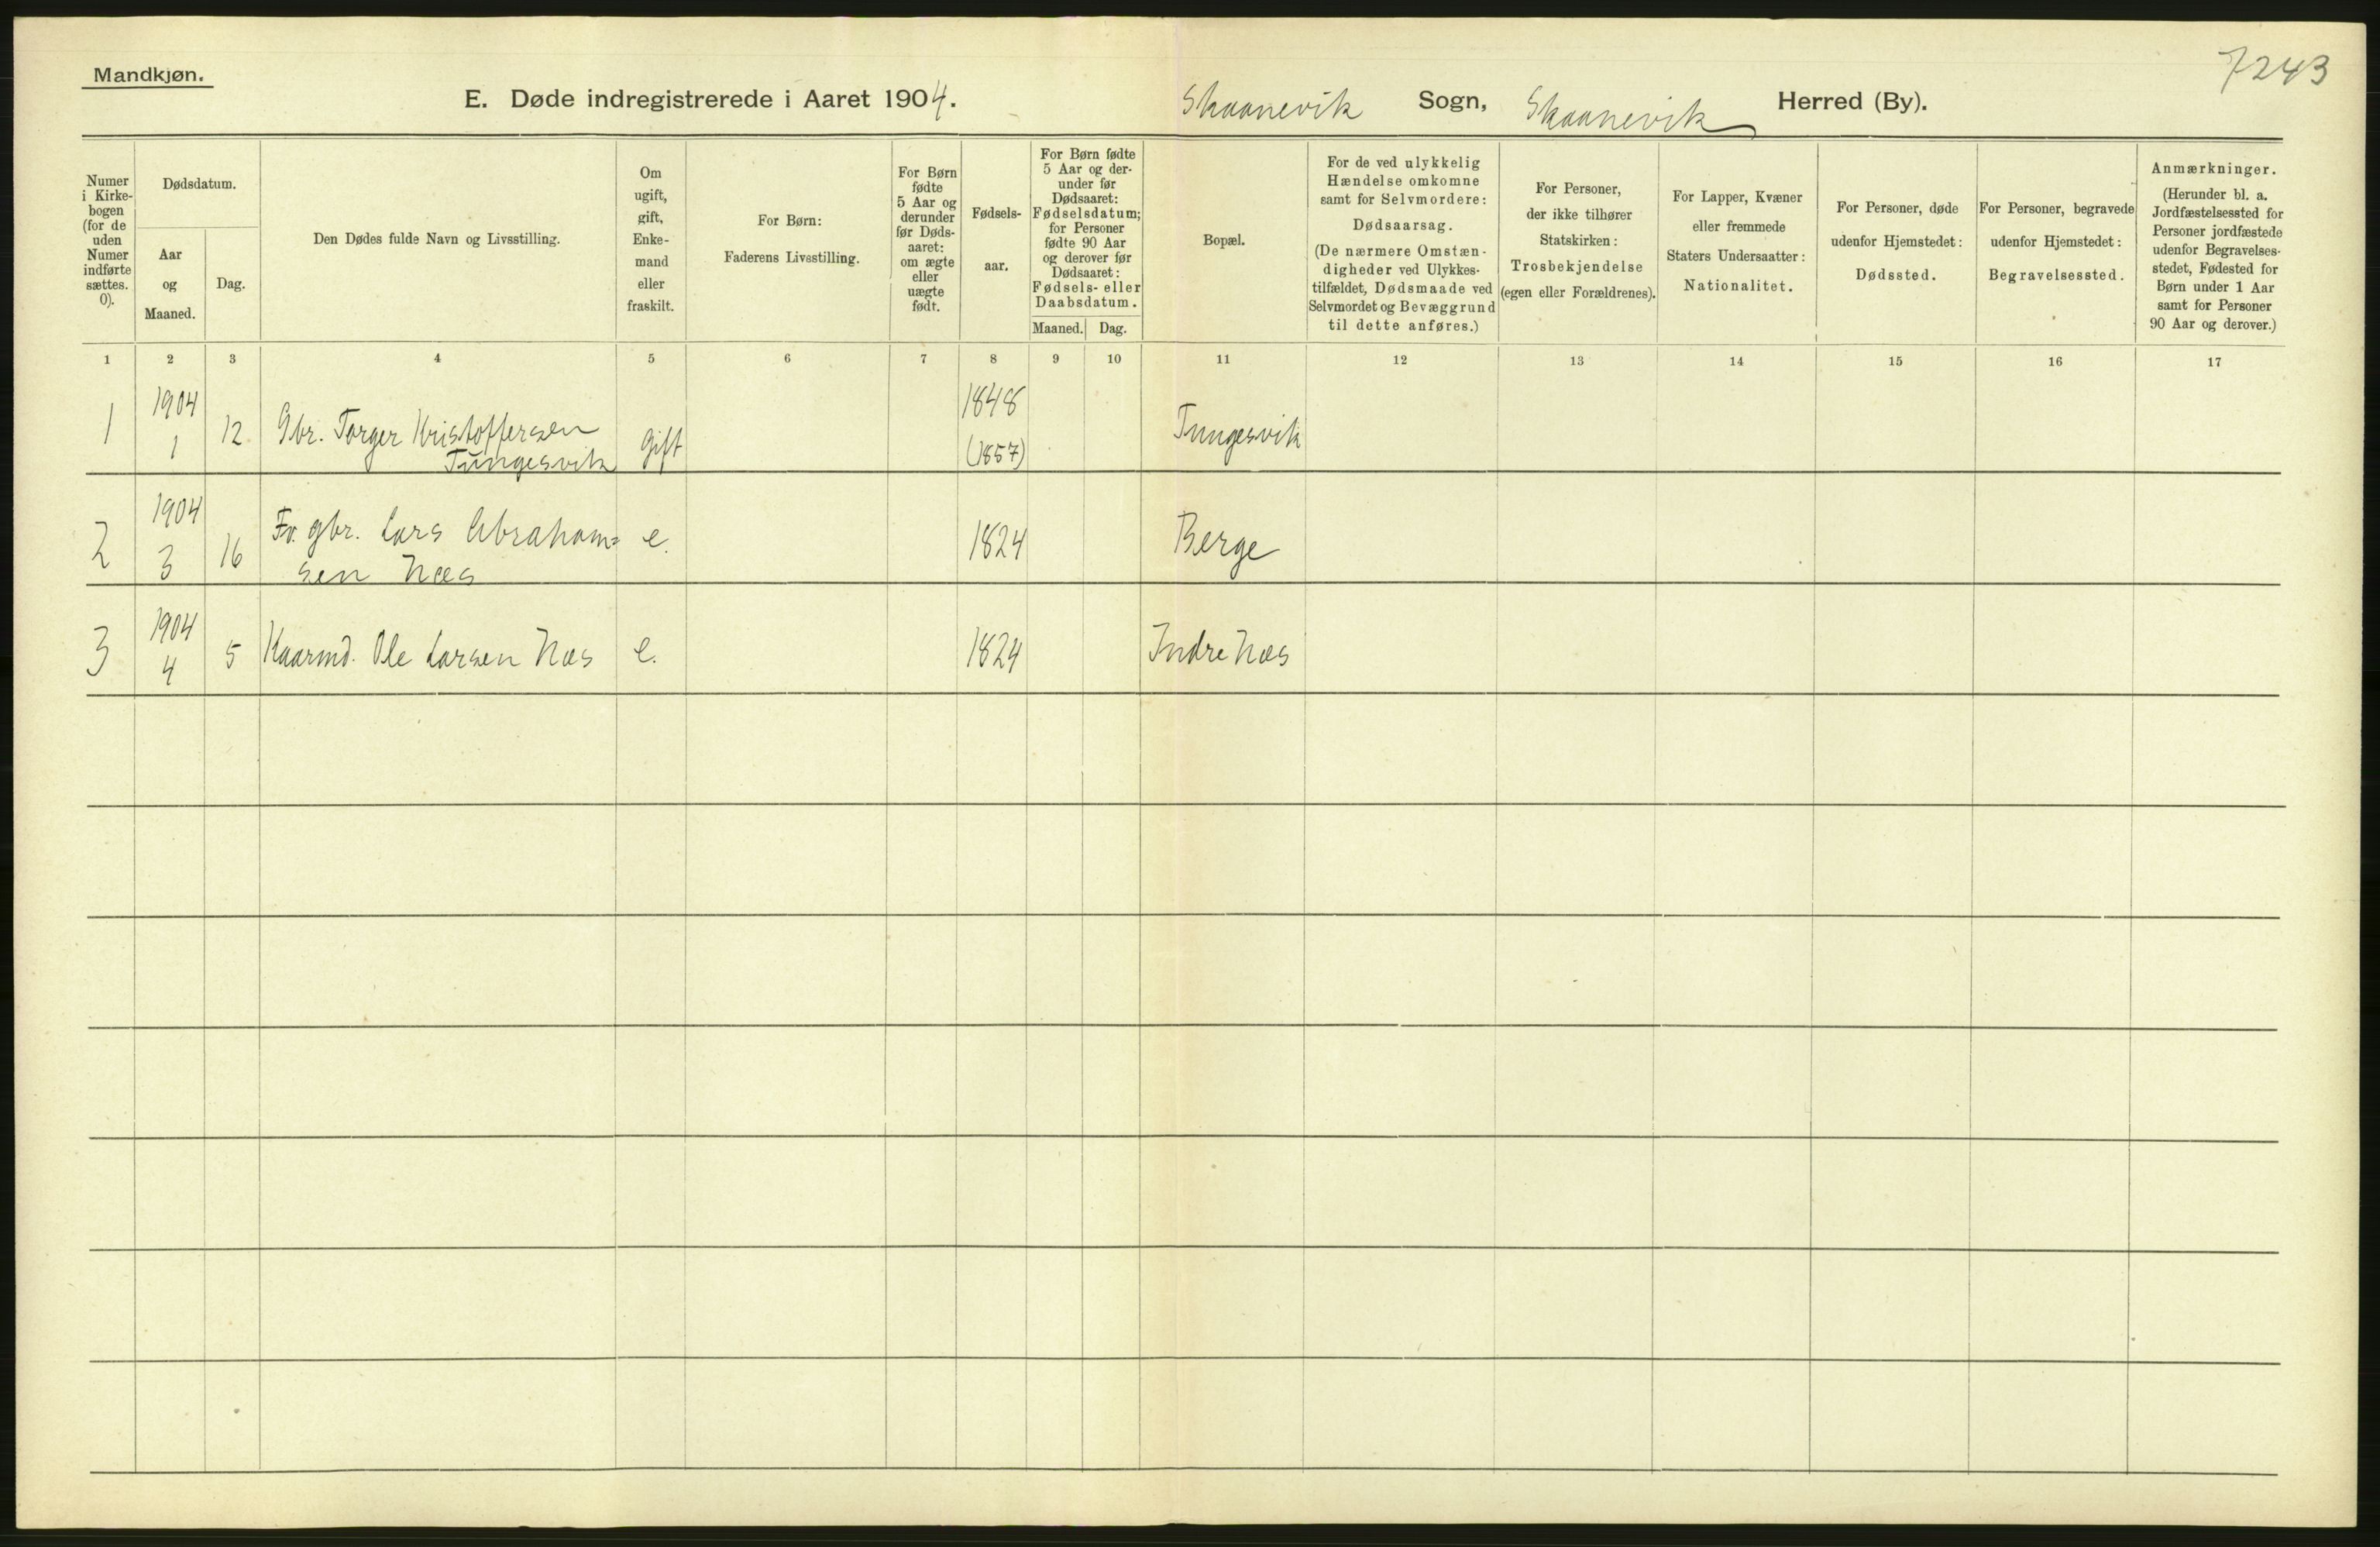 Mandkjøn.
7243
E. Døde indregistrerede i Aaret 1904.
Skaanevik Sogn, Skaanevik Herred (By).
Numer
i Kirke-
bogen
(for de
uden
Numer
indførte
sættes.
0).
Dødsdatum.
Aar
og
Maaned.
Dag.
Den Dødes fulde Navn og Livsstilling.
Om
ugift,
gift,
Enke-
mand
eller
fraskilt.
For Børn:
Faderens Livsstilling.
For Børn
fødte
5 Aar og
derunder
før Døds-
aaret:
om ægte
eller
uægte
født.
Fødsels-
aar.
For Børn fødte
5 Aar og der-
under før
Dødsaaret:
Fødselsdatum;
for Personer
fødte 90 Aar
og derover før
Dødsaaret:
Fødsels- eller
Daabsdatum.
Maaned. Dag.
Bopæl.
For de ved ulykkelig
Hændelse omkomne
samt for Selvmordere:
Dødsaarsag.
(De nærmere Omstæn-
digheder ved Ulykkes-
tilfældet, Dødsmaade ved
Selvmordet og Bevæggrund
til dette anføres.)
For Personer,
der ikke tilhører
Statskirken:
Trosbekjendelse
(egen eller Forældrenes).
For Lapper, Kvæner
eller fremmede
Staters Undersaatter:
Nationalitet.
For Personer, døde
udenfor Hjemstedet:
Dødssted.
For Personer, begravede
udenfor Hjemstedet:
Begravelsessted.
Anmærkninger.
(Herunder bl. a.
Jordfæstelsessted for
Personer jordfæstede
udenfor Begravelses-
stedet, Fødested for
Børn under 1 Aar
samt for Personer
90 Aar og derover.)
1 2 3 4 5 6 7 8 9 10 11 12 13 14 15 16 17
1904 1848
1 1 12 Gbr. Torger Kristoffersen gift (1857) Tungesvik
Tungesvik
1904
2 3 16 Fv. gbr. Lars Abraham= e. 1824 Berge
sen Næs
1904
3 4 5 Kaarmd. Ole Larsen Næs e. 1824 Indre Næs